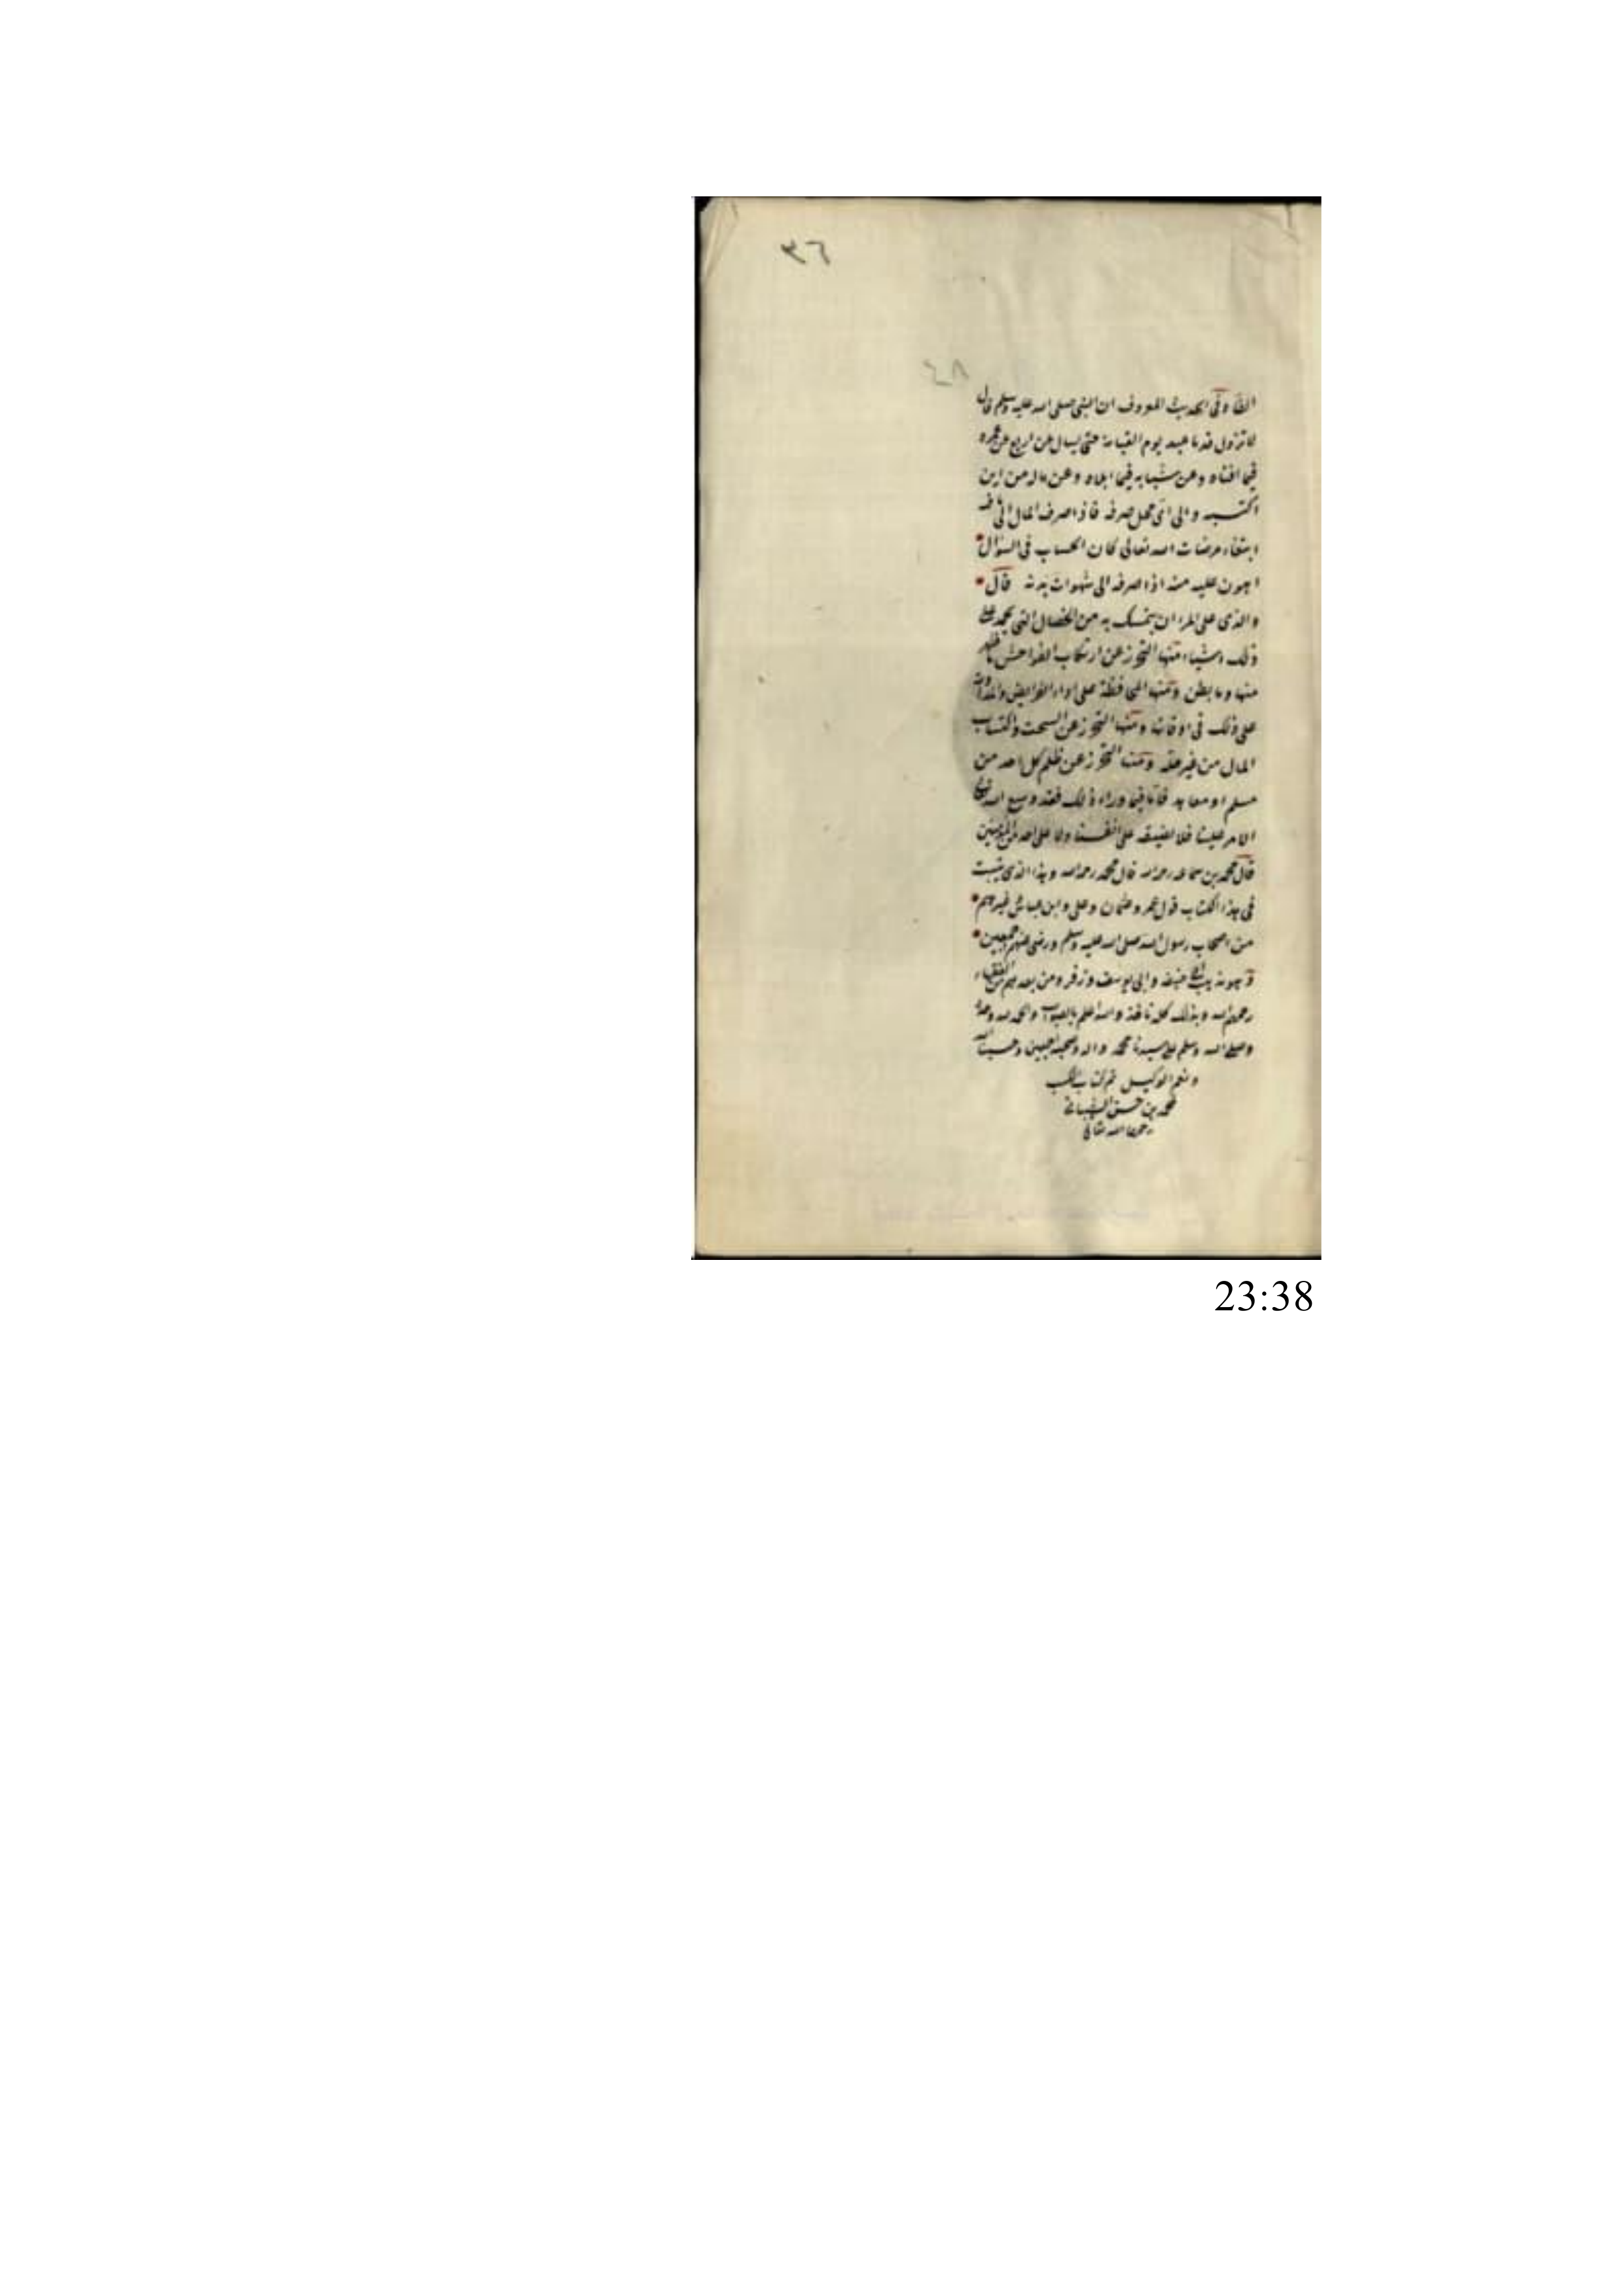 ٣٦
٤٨
وفى الحديث المعروف ان النبى صلى الله عليه وسلم قال
لا تزول قدما عبد يوم القيامة حتى يسال عن اربع عن عمره
فيما افناه وعن شبابه فيما ابلاه وعن ماله من اين
اكتسبه والى اى محل صرفه فاذا صرف المال الى ما فيه
ابتغاء مرضات الله تعالى كان الحساب فى السؤال
اهون عليه منه اذا صرفه الى شهوات بدنه قال
والذى على المرء ان يتمسك به من الخصال التى يحمد على
ذلك اشياء منها التحرز عن ارتكاب الفواحش ما ظهر
منها وما بطن ومنها المحافظة على اداء الفرايض والمداومة
على ذلك فى اوقاتها ومنها التحرز عن السحت واكتساب
المال من غير حله ومنها التحرز عن ظلم كل احد من
مسلم او معاهد فاما فيما وراء ذلك فقد وسع الله تعالى
الامر علينا فلا نضيقه على انفسنا ولا على احد من المؤمنين
قال محمد بن سماعه رحمه الله قال محمد رحمه الله وهذا الذى بينت
فى هذا الكتاب قول عمر وعثمان وعلى وابن عباس وغيرهم
من اصحاب رسول الله صلى الله عليه وسلم ورضى عنهم اجمعين
وهو مذهب ابى حنيفه وابى يوسف وزفر ومن بعدهم من الفقهاء
رحمهم الله وبذلك كله ناخذ والله اعلم بالصواب والحمد لله وحده
وصلى الله وسلم على سيدنا محمد واله وصحبه اجمعين وحسبنا الله
ونعم الوكيل تم كتاب الكسب
محمد بن حسن الشيبانى
رحمه الله تعالى
23:38